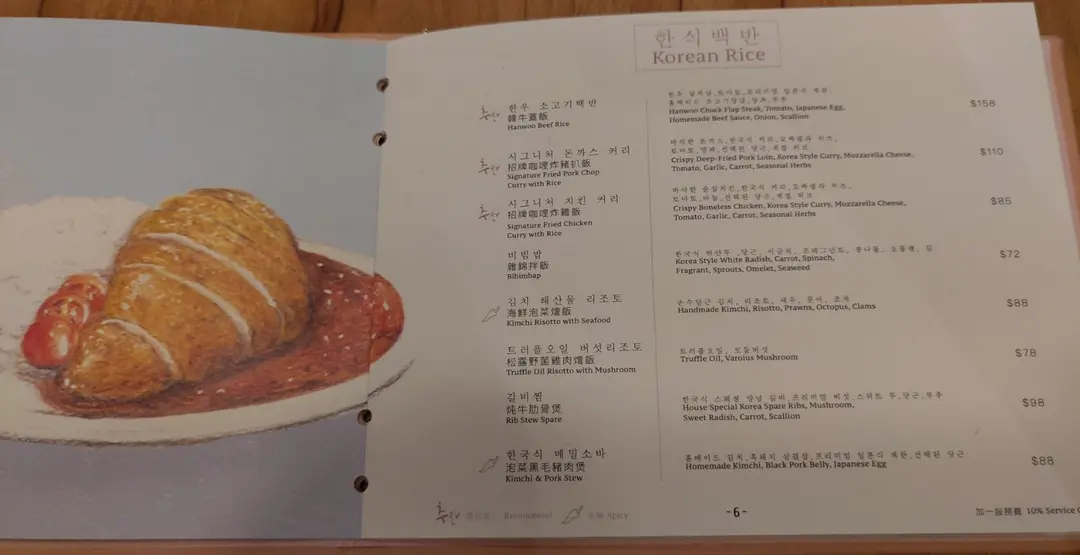 한식백반
Korean Rice
추천
한우 소고기백반
韓牛蓋飯
Hanwoo Beef Rice
Hanwoo Chuck Flap Steak, Tomato, Japanese Egg,
Homemade Beef Sauce, Onion, Scallion
$158
추천
시그니처 돈까스 커리
招牌咖哩炸豬扒飯
Signature Fried Pork Chop
Curry with Rice
바삭한 돈까스,한국식 커리,모짜렐라 치즈,
Crispy Deep-Fried Pork Loin, Korea Style Curry, Mozzarella Cheese,
Tomato, Garlic, Carrot, Seasonal Herbs
$110
추천
시그니처 치킨 커리
招牌咖哩炸雞飯
Signature Fried Chicken
Curry with Rice
바삭한 순살치킨,한국식 커리,모짜렐라 치즈,
Crispy Boneless Chicken, Korea Style Curry, Mozzarella Cheese,
Tomato, Garlic, Carrot, Seasonal Herbs
$85
비빔밥
雜錦拌飯
Bibimbap
Korea Style White Radish, Carrot, Spinach,
Fragrant, Sprouts, Omelet, Seaweed
$72
김치 해산물 리조토
海鮮泡菜燴飯
Kimchi Risotto with Seafood
김치, 리조토, 새우, 문어, 조개
Handmade Kimchi, Risotto, Prawns, Octopus, Clams
$88
트러플오일 버섯리조토
松露野菌雞肉燴飯
Truffle Oil Risotto with Mushroom
트러플오일, 모듬버섯
Truffle Oil, Varoius Mushroom
$78
갈비찜
炖牛肋骨煲
Rib Stew Spare
House Special Korea Spare Ribs, Mushroom,
Sweet Radish, Carrot, Scallion
$98
한국식 메밀소바
泡菜黑毛豬肉煲
Kimchi & Pork Stew
Homemade Kimchi, Black Pork Belly, Japanese Egg
$88
추천 Recommend
Spicy
-6-
加一服務費 10% Service